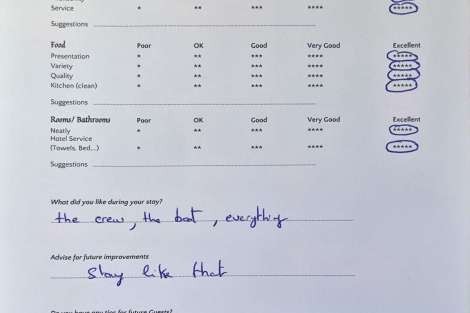 Service * ** *** **** *****
Suggestions
Food Poor OK Good Very Good Excellent
Presentation * ** *** **** *****
Variety * ** *** **** *****
Quality * ** *** **** *****
Kitchen (clean) * ** *** **** *****
Suggestions
Rooms/ Bathrooms Poor OK Good Very Good Excellent
Neatly * ** *** **** *****
Hotel Service
(Towels, Bed...) * ** *** **** *****
Suggestions
What did you like during your stay?
the crew, the boat, everything
Advise for future improvements
Stay like that
Do you have any tips for future Guests?